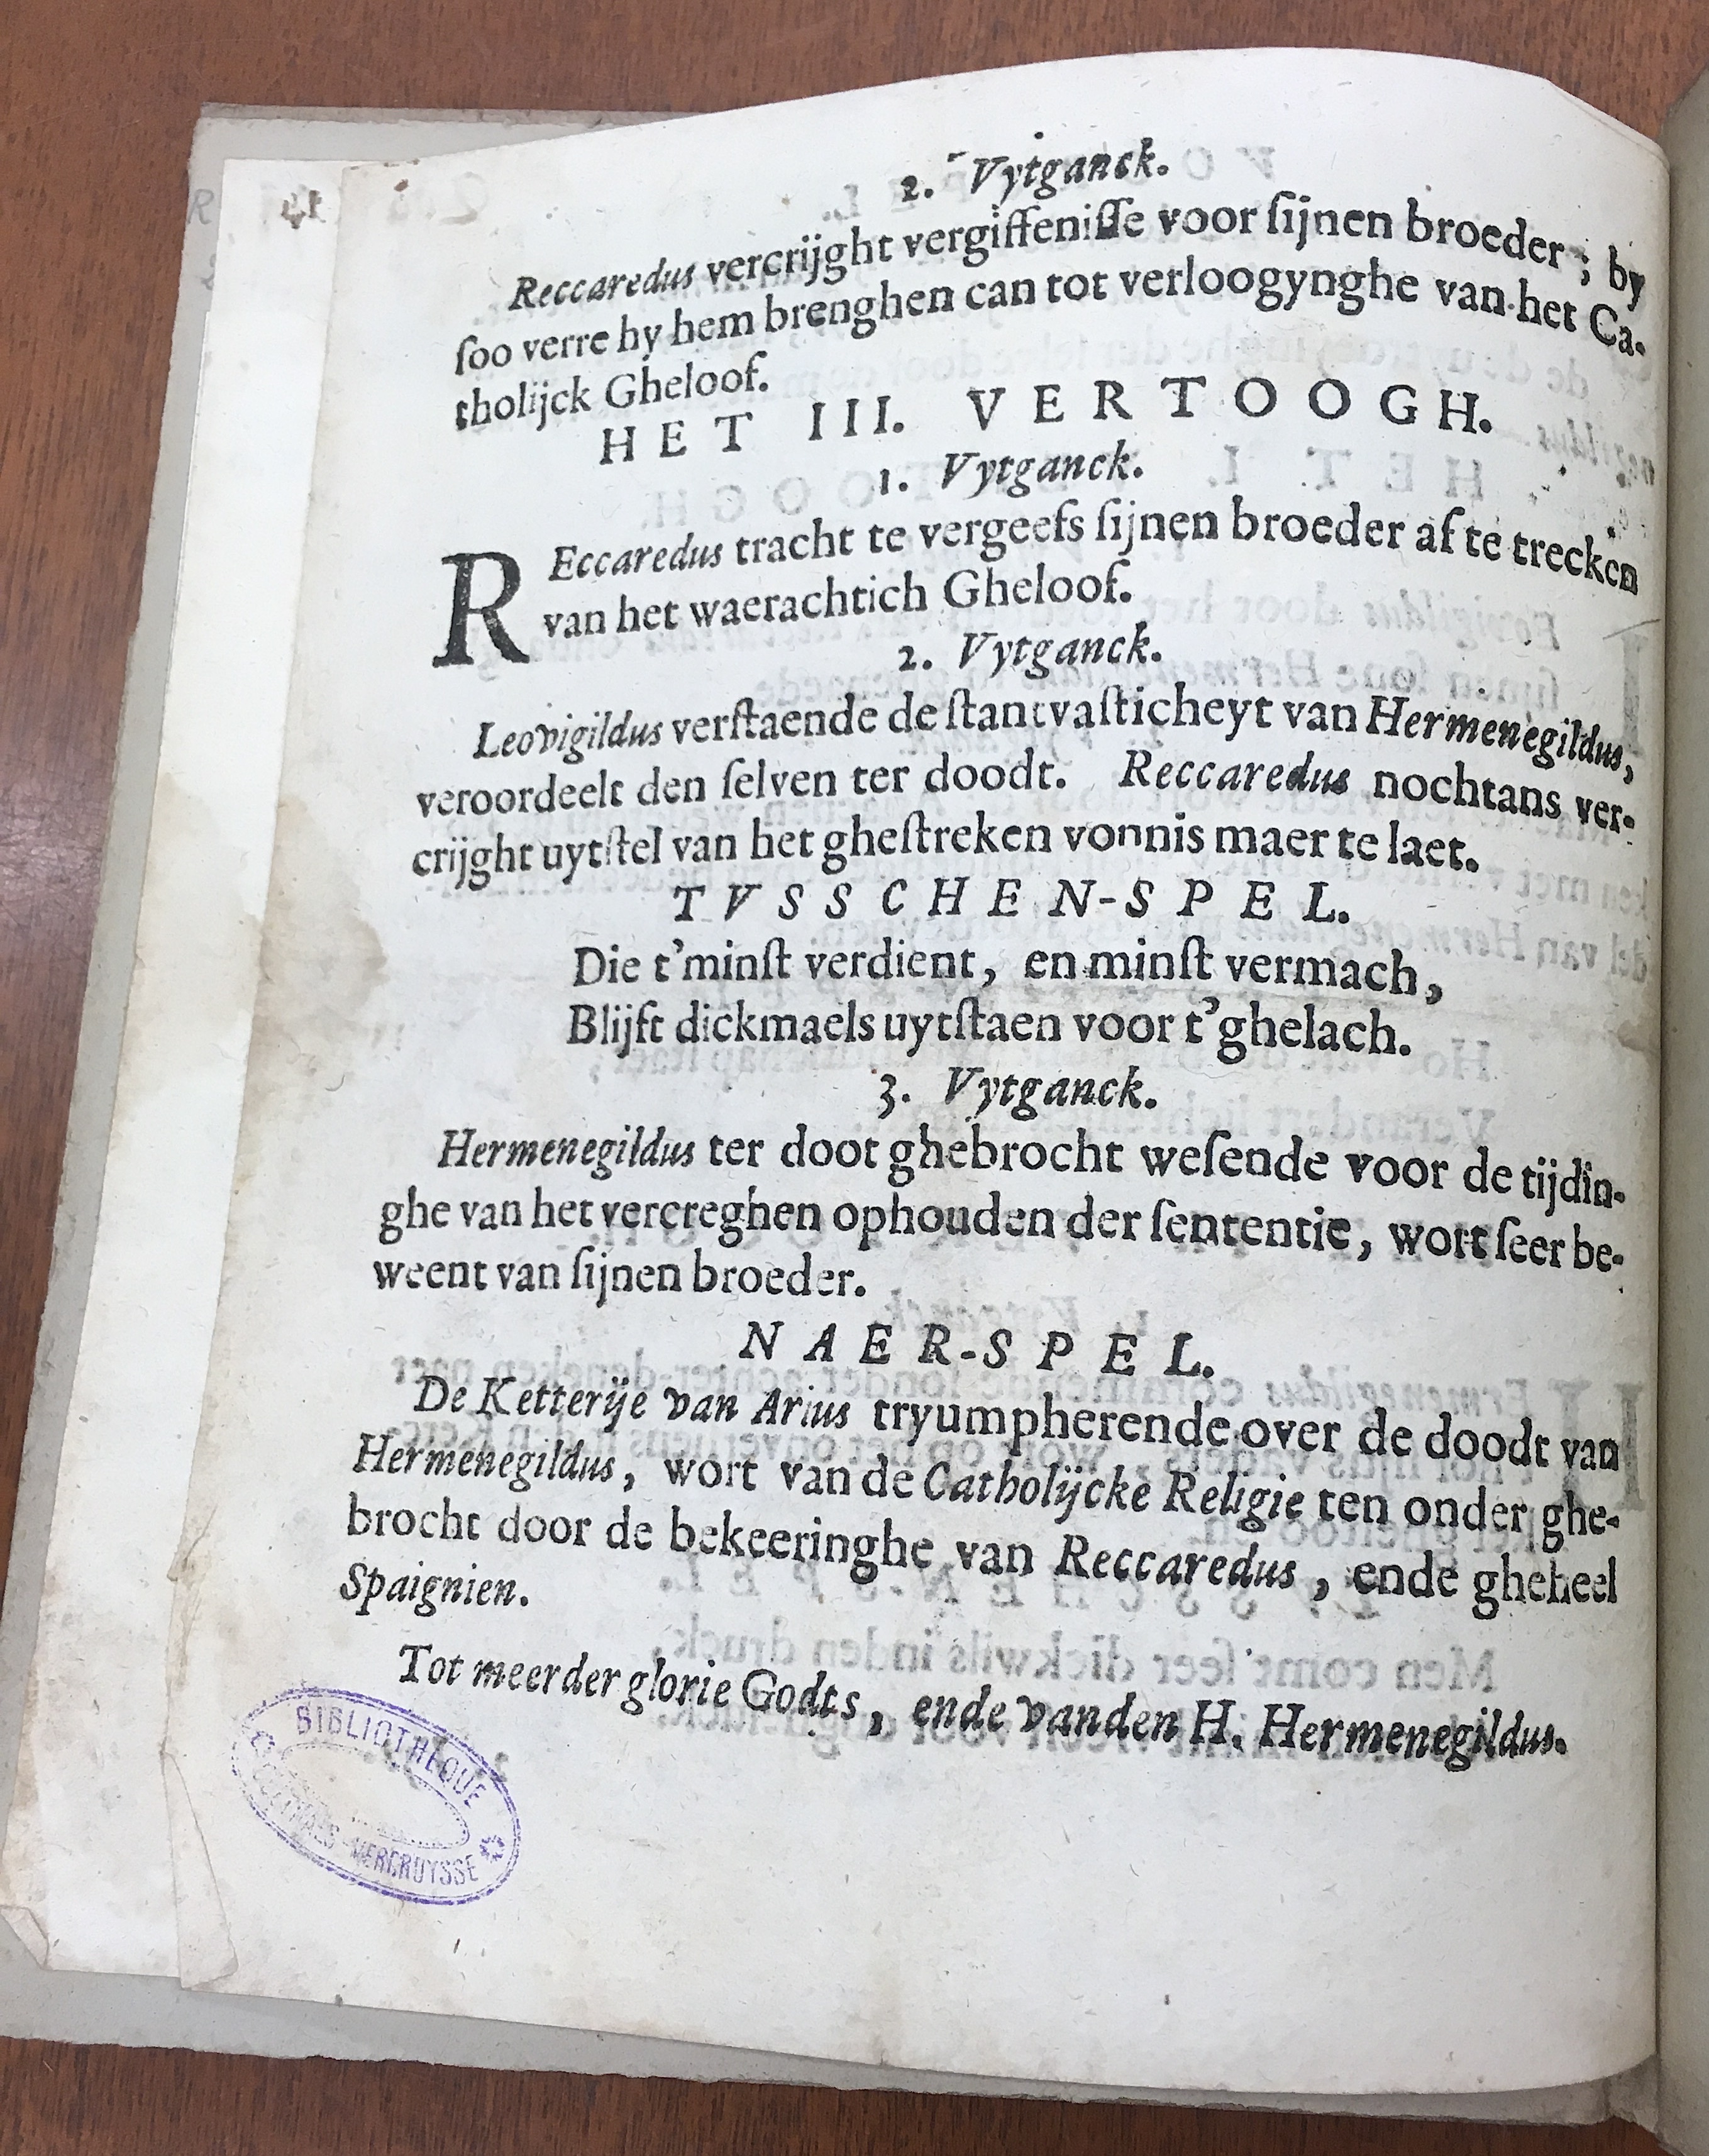 2. Vytganck.
Reccaredus vercrijght vergiffenisse voor sijnen broeder; by
soo verre hy hem brenghen can tot verloogynghe van het Ca-
tholijck Gheloof.
HET III. VERTOOGH.
1. Vytganck.
REccaredus tracht te vergeefs sijnen broeder af te trecken
van het waerachtich Gheloof.
2. Vytganck.
Leovigildus verstaende de stantvasticheyt van Hermenegildus,
veroordeelt den selven ter doodt. Reccaredus nochtans ver-
crijght uytstel van het ghestreken vonnis maer te laet.
TVSSCHEN-SPEL.
Die t'minst verdient, en minst vermach,
Blijft dickmaels uytstaen voor t'ghelach.
3. Vytganck.
Hermenegildus ter doot ghebrocht wesende voor de tijdin-
ghe van het vercreghen ophouden der sententie, wort seer be-
weent van sijnen broeder.
NAER-SPEL.
De Ketterije van Arius tryumpherende over de doodt van
Hermenegildus, wort van de Catholijcke Religie ten onder ghe-
brocht door de bekeeringhe van Reccaredus, ende gheheel
Spaignien.
Tot meerder glorie Godts, ende vanden H. Hermenegildus.
BIBLIOTHEQUE
GOETHALS-VERCRUYSSE